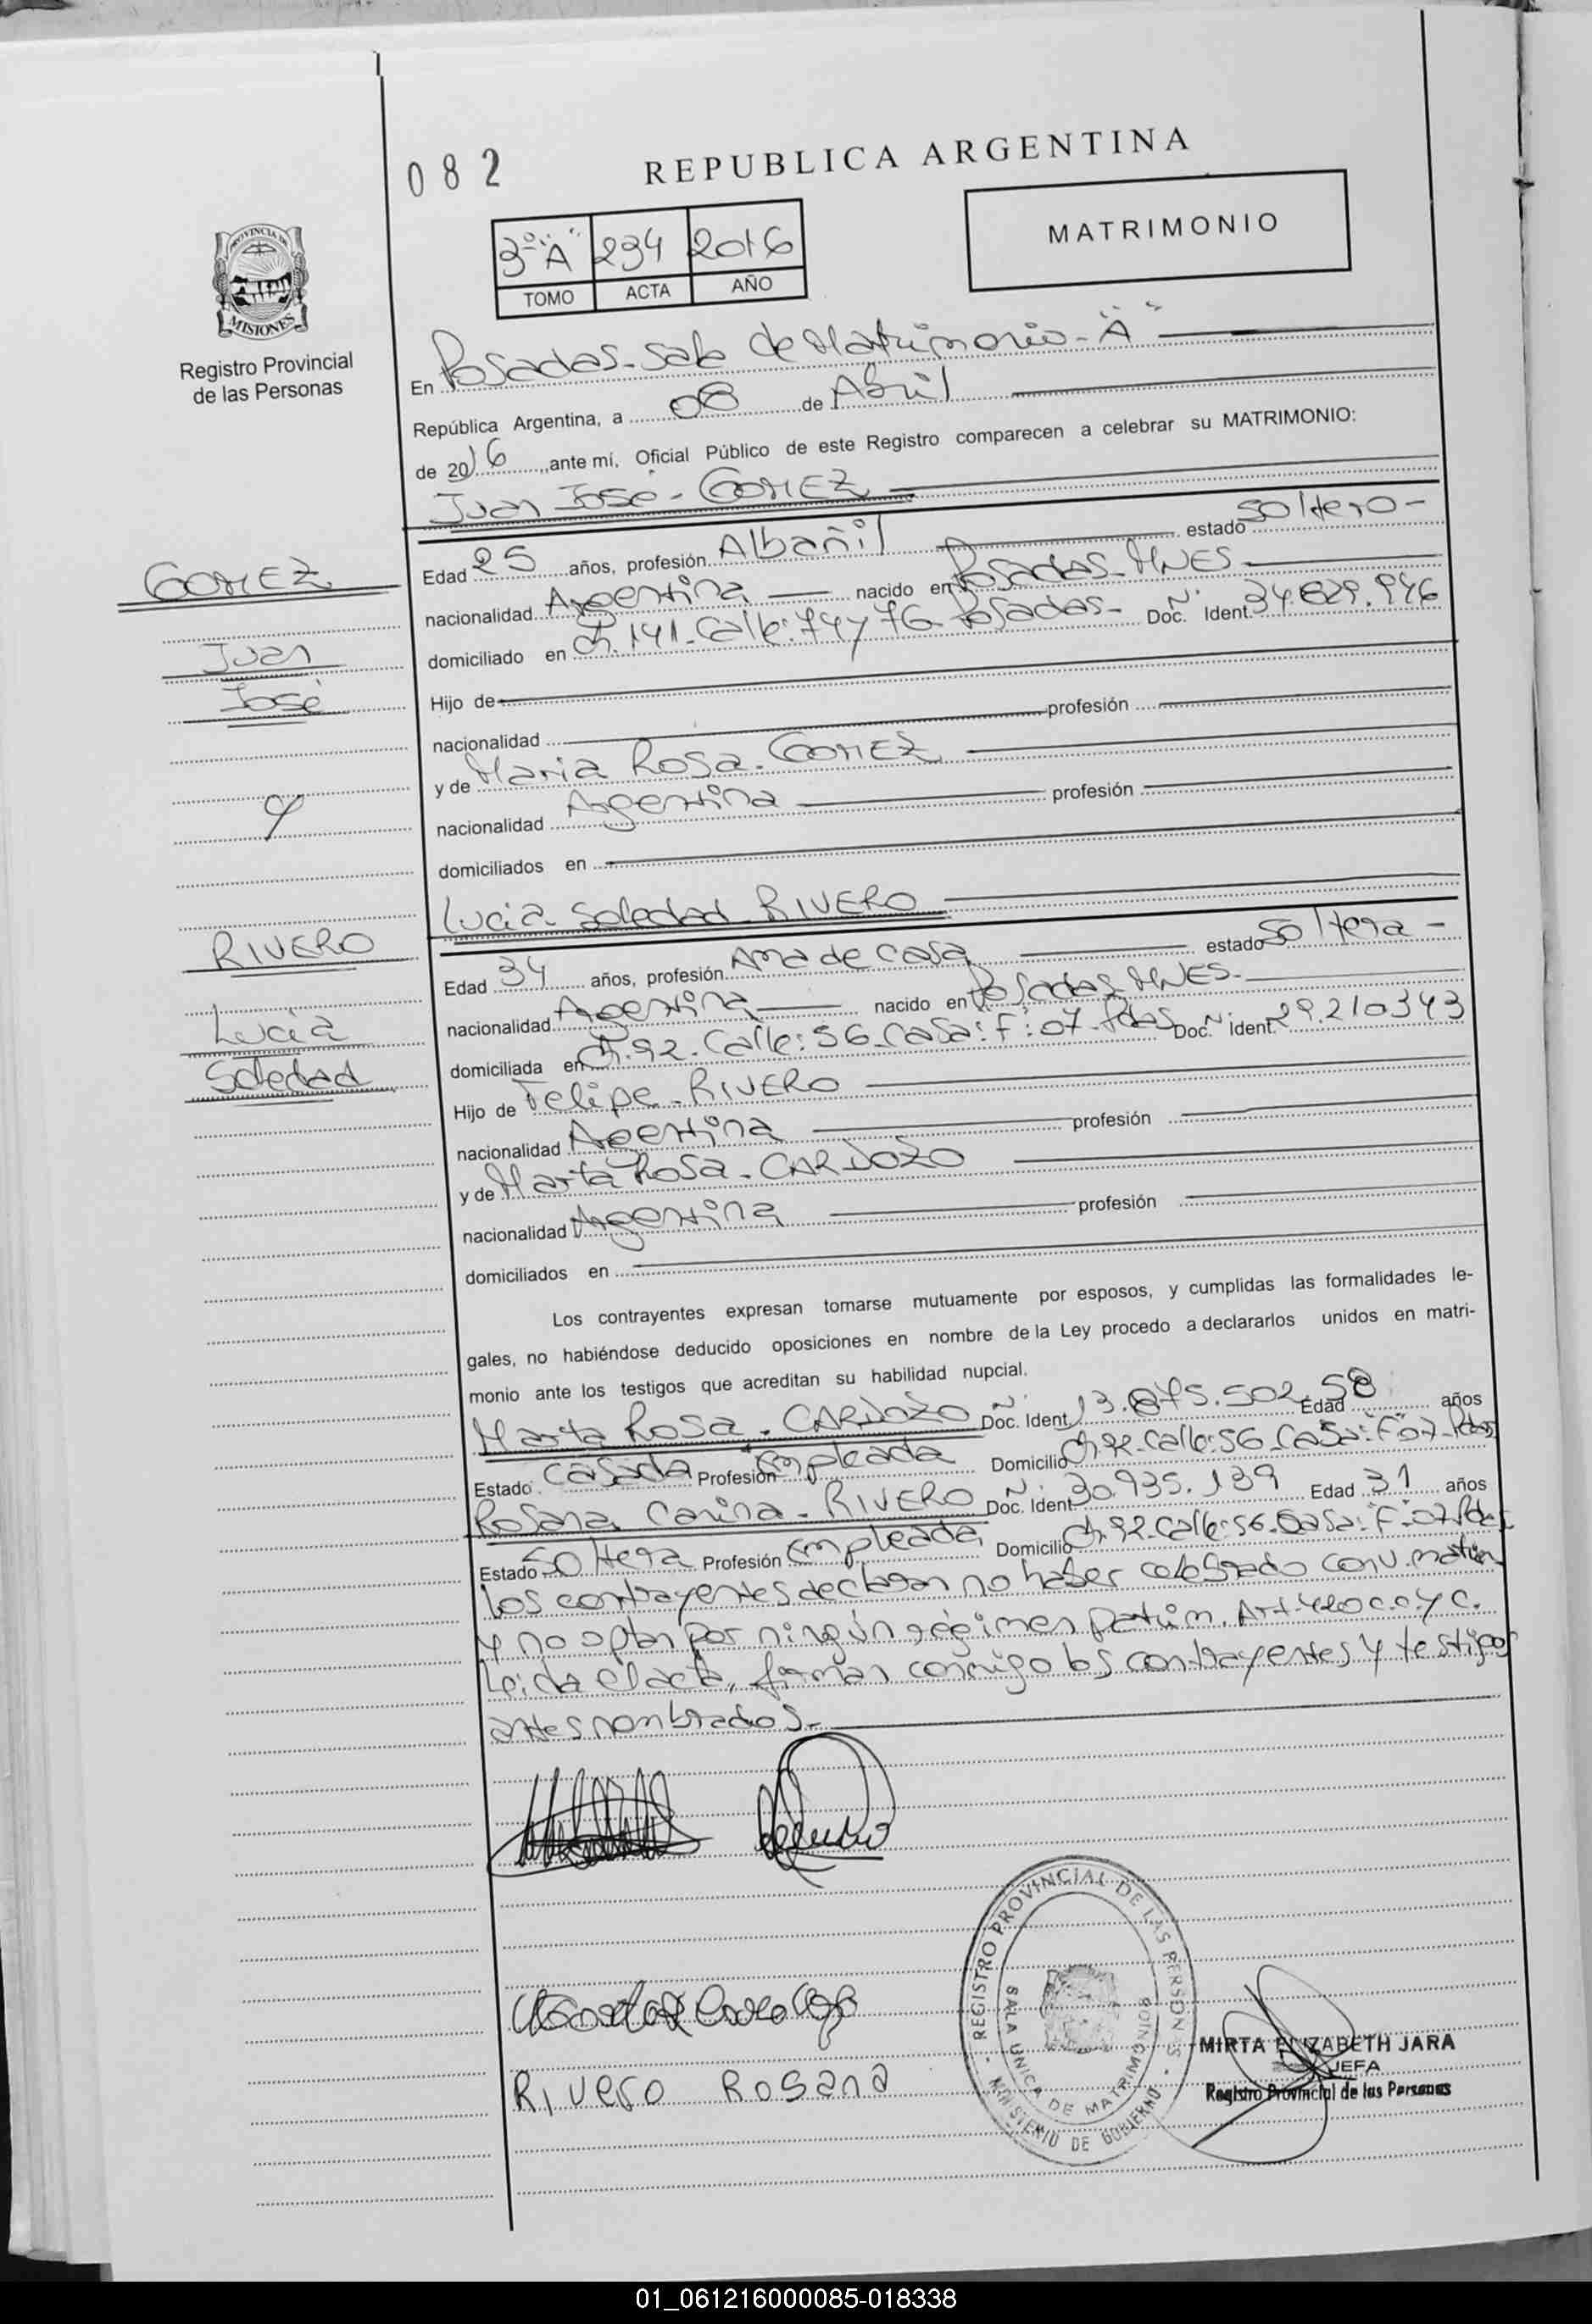 082
REPUBLICA ARGENTINA
PROVINCIA DE
MISIONES
Registro Provincial
de las Personas
3º "A" 234 2016
TOMO ACTA AÑO
MATRIMONIO
En Posadas - Sala de Matrimonio - "A"
República Argentina, a 08 de Abril
de 2016, ante mí, Oficial Público de este Registro comparecen a celebrar su MATRIMONIO:
Juan José - GOMEZ
GOMEZ
Juan
José
y
RIVERO
Lucia
Soledad
Edad 25 años, profesión Albañil estado Soltero -
nacionalidad Argentina nacido en Posadas - MNES -
domiciliado en Ch. 141 - Calle: 74 y 76 - Posadas - Doc. N: Ident. 34.829.946
Hijo de
nacionalidad profesión
y de Maria Rosa - GOMEZ
nacionalidad Argentina profesión
domiciliados en
Lucia Soledad - RIVERO
Edad 34 años, profesión Ama de casa estado Soltera -
nacionalidad Argentina nacido en Posadas - MNES -
domiciliada en Ch. 92 - Calle: 56 - Casa: "F": 07 - Pdas Doc. N: Ident. 29.210343
Hijo de Felipe - RIVERO
nacionalidad Argentina profesión
y de Marta Rosa - CARDOZO
nacionalidad Argentina profesión
domiciliados en
Los contrayentes expresan tomarse mutuamente por esposos, y cumplidas las formalidades le-
gales, no habiéndose deducido oposiciones en nombre de la Ley procedo a declararlos unidos en matri-
monio ante los testigos que acreditan su habilidad nupcial.
Marta Rosa - CARDOZO Doc. N: Ident. 13.875.502 Edad 58 años
Estado: Casada Profesión Empleada Domicilio Ch. 92 - Calle: 56 - Casa: "F": 07 - Pdas
Rosana Carina - RIVERO Doc. N: Ident. 30.935.139 Edad 31 años
Estado Soltera Profesión Empleada Domicilio Ch. 92 - Calle: 56 - Casa: "F": 07 Pdas
Los contrayentes declaran no haber celebrado conv. matrim
y no optan por ningún régimen patrim. Art. 420 C.C. y C.
Leida el acta, firman conmigo los contrayentes y testigos
antes nombrados -
Rivero Rosana
REGISTRO PROVINCIAL DE LAS PERSONAS
SALA UNICA DE MATRIMONIOS
MINISTERIO DE GOBIERNO
MIRTA ELIZABETH JARA
JEFA
Registro Provincial de las Personas
01_061216000085-018338